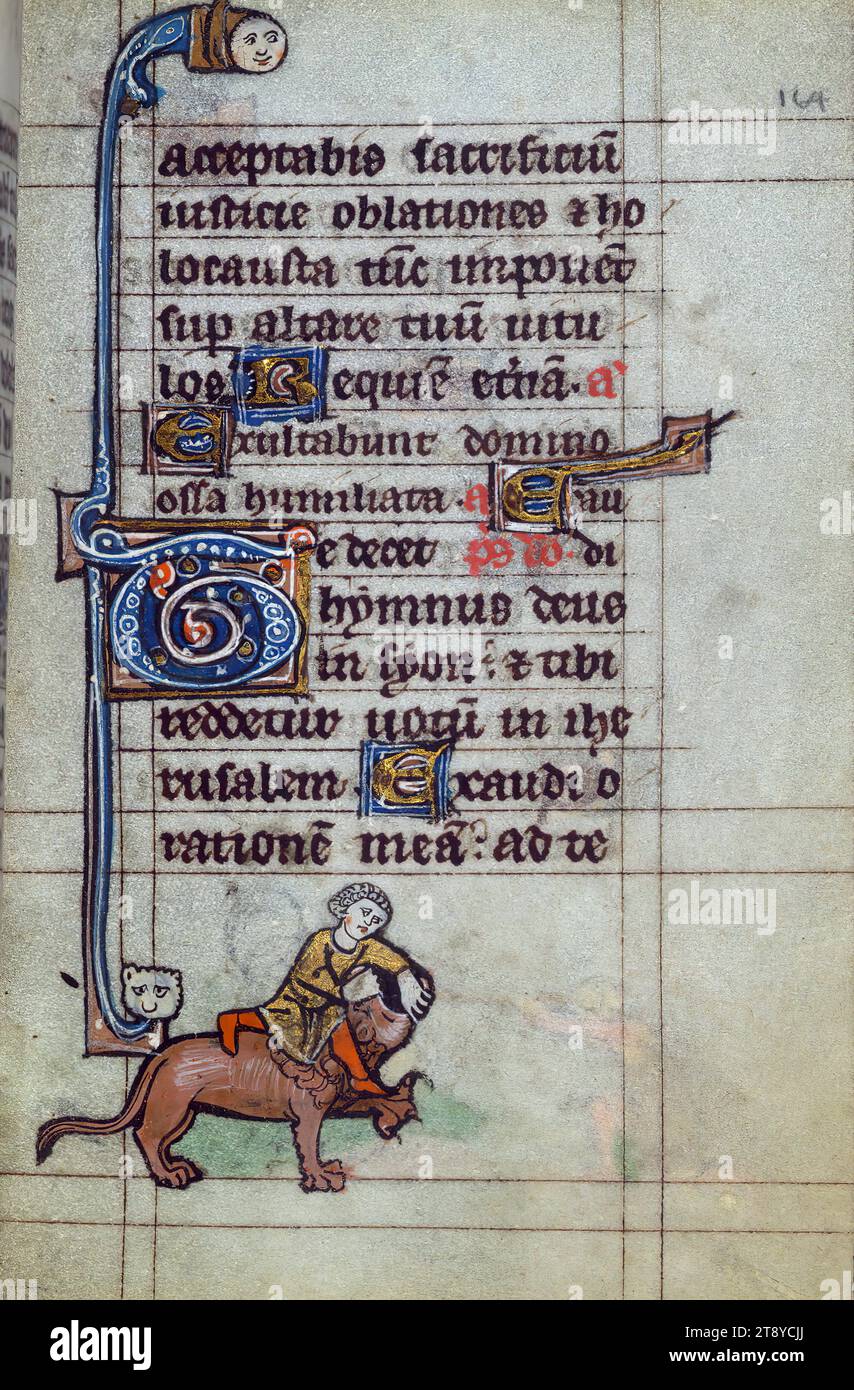 164
acceptabis sacrificiū
iusticie oblationes ⁊ ho
locausta tūc imponēt
sup altare tuū uitu
los Requiē et̾nā. a'
Exultabunt domino
ossa humiliata. a Exau
Te decet ps dd. di
hymnus deus
in syon: ⁊ tibi
reddetur uotū in ihe
rusalem. Exaudi o
rationē meā: ad te
alamy
Image ID: 2T8YCJJ
www.alamy.com